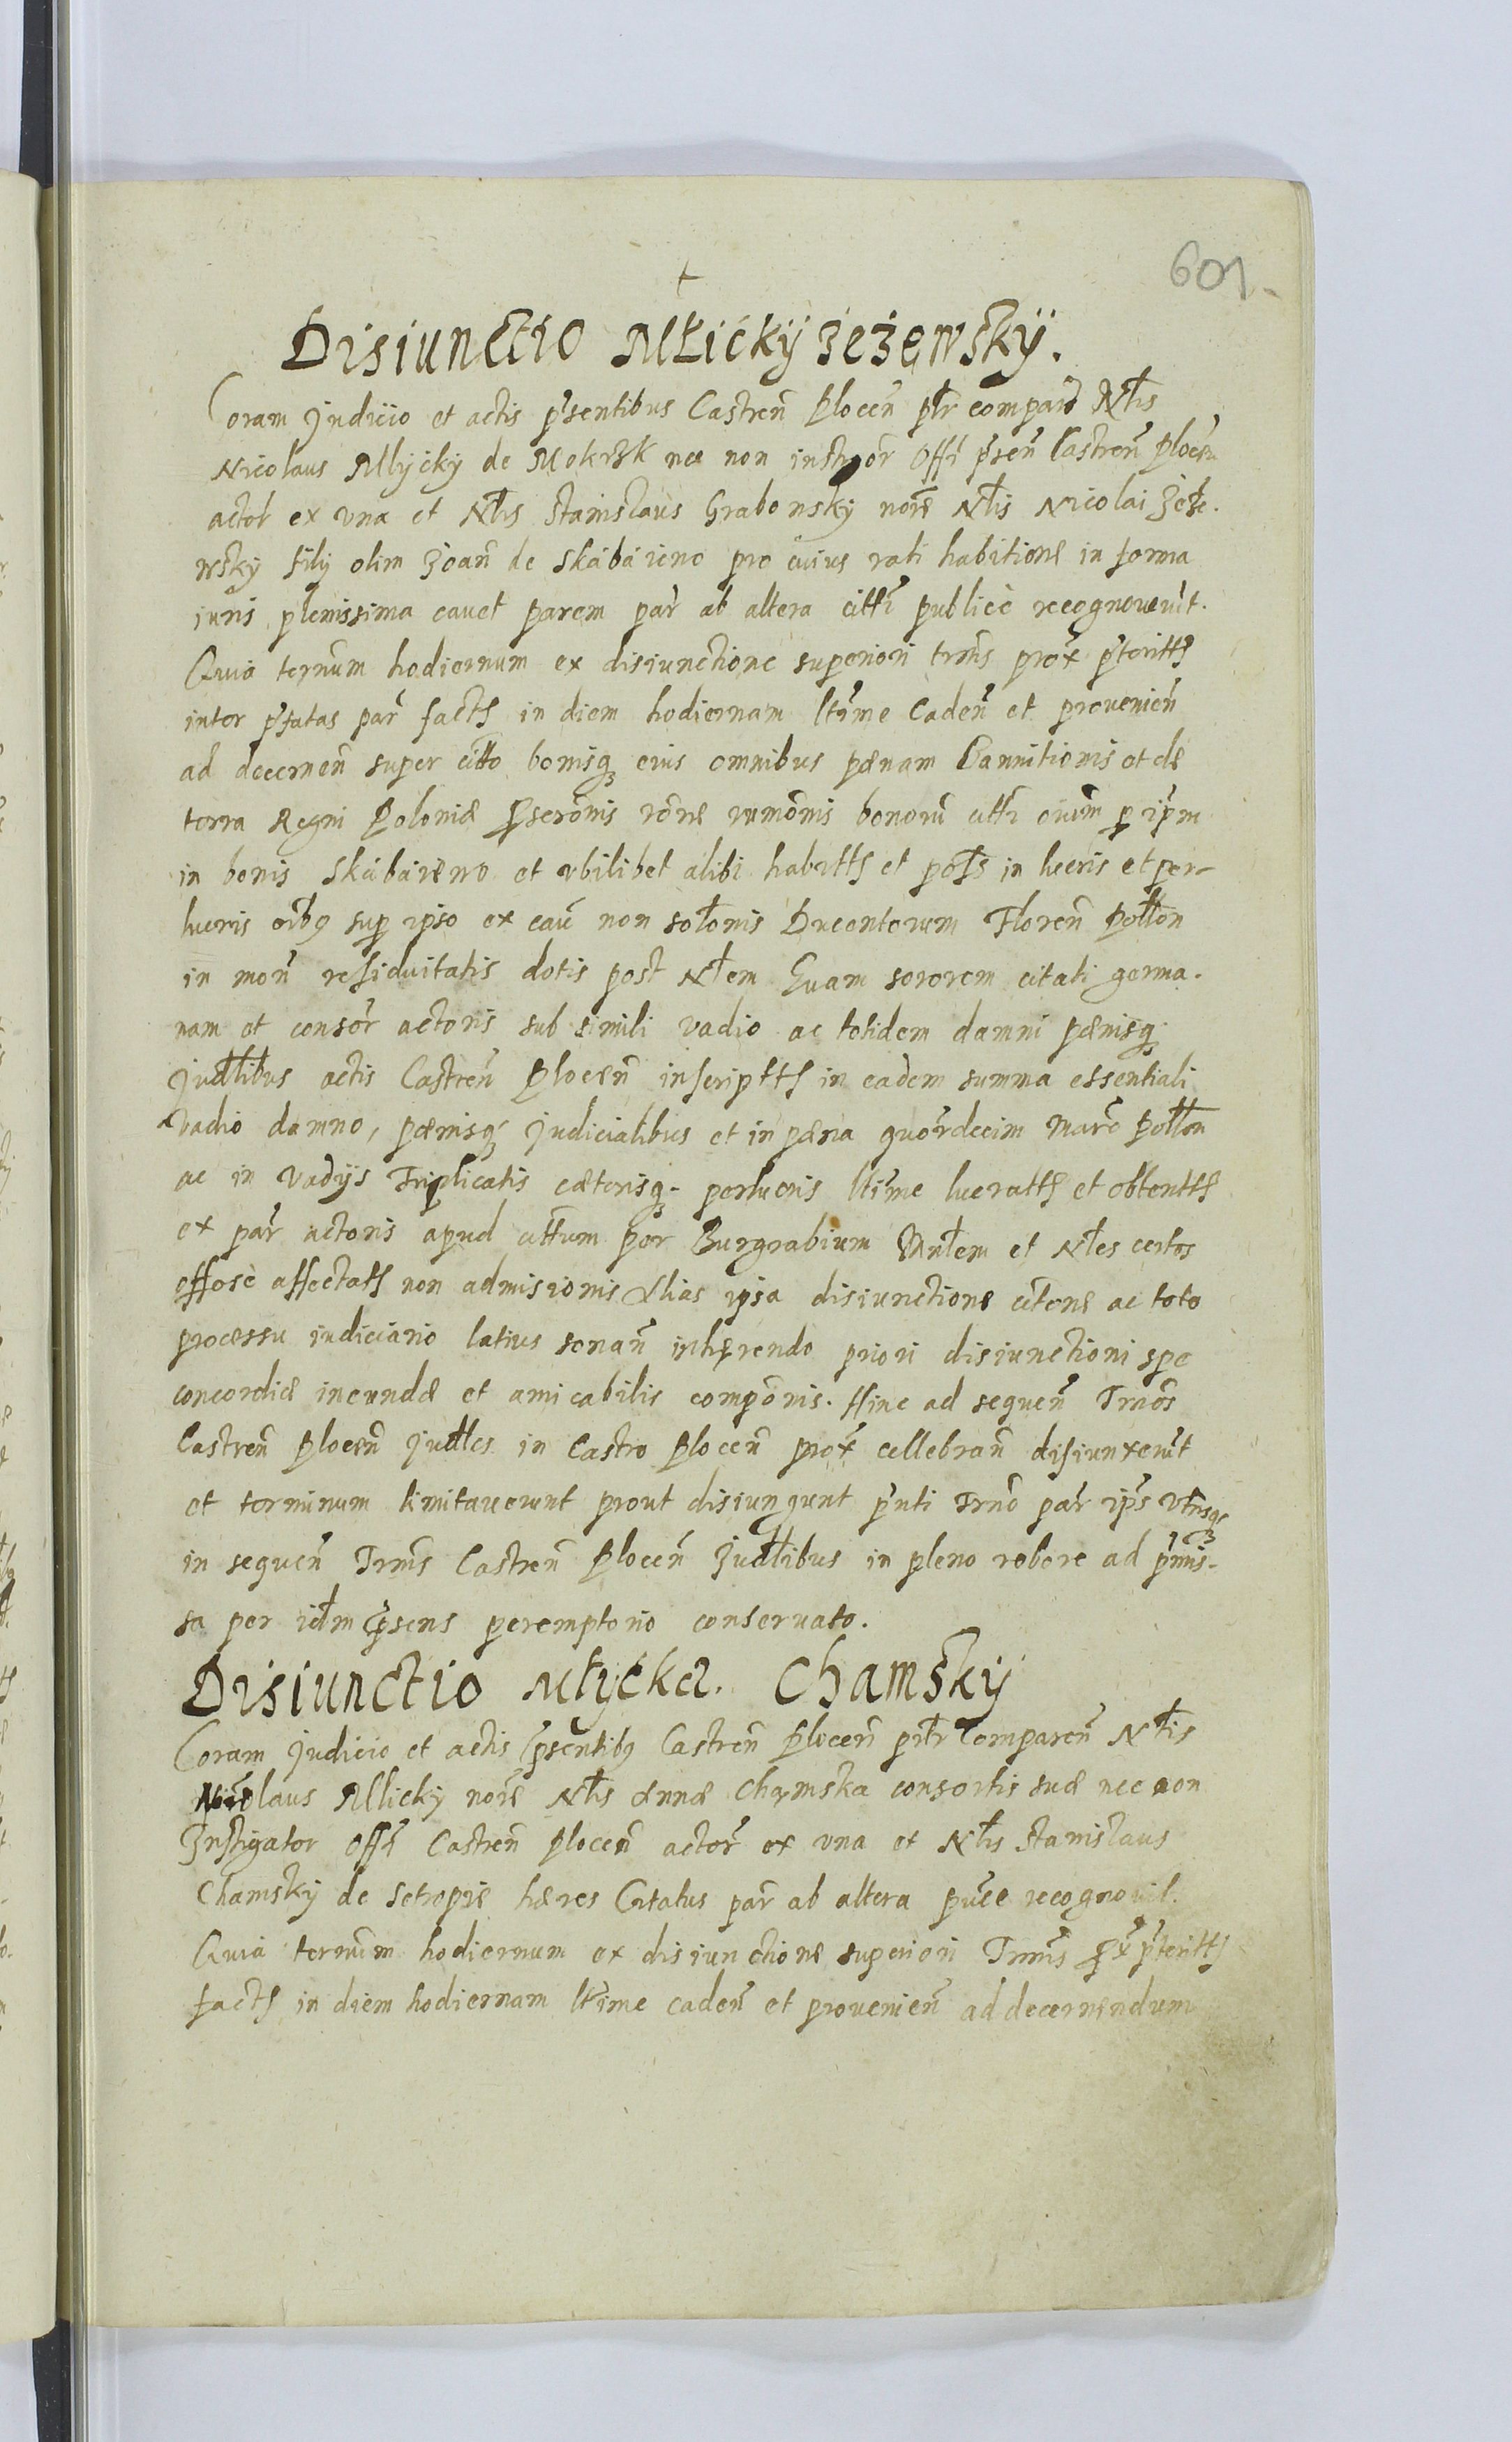 601.
Disiunctio Młicky Żeżewsky.
Coram Judicio et actis pñsentibus Castreñ Plocen plr comparo Nłis
Nicolaus Mlycky de Mokrzk nec non instigor Offi pñsen Castreñ Plocen
actor ex vna et Nłis Stanislaus Grabowsky noïe Nłis Nicolai Żeże-
wsky fily olim Joañ de Skábáiewo pro cuius rati habitione in forma
iuris plenissima cauet parem par ab altera citti publicè recognoverut.
Quia ternum hodiernum ex disiunctione superiori trmis prox pteritts
inter pfatas par facts in diem hodiernam ltime Cadeñ et provenieñ
ad decerneñ super citto bonisq eius omnibus pænam Bannitionis et de
terra Regni Poloniæ Pscronis rone rumonis bonorũ citti oium p ipm
in bonis Skábáiewo et vbilibet alibi habitts et poss in lucris et per-
lucris oibq sup ipso ex cau non solonis Ducentorum Floreñ Pollon
in mon residuitatis dotis post Nłem Euam sororem citati germa-
nam et consor actoris sub simili vadio ac totidem damni pænisq
Judlibus actis Castreñ Plocen inscriptts in eadem summa essentiali
vadio damno, pænisq Judicialibus et in pæna quordecim Marc Pollon
ac in vadys Triplicatis cæterisq. perlucris ltime lucratts et obtentts
ex par actoris apud cittum per Burgrabium Mnłem et Nłes certos
offosè affectats non admisionis Alias ipsa disiunctione citone ac toto
processu iudiciario latius sonañ inhęrendo priori disiunctioni spe
concordiæ ineundæ et amicabilis componis. Hinc ad sequeñ Trmos
Castreñ Ploceñ Judles in Castro Ploceñ prox cellebrañ disiunxerũt
et terminum limitaverunt prout disiungunt pñti Trmo par ips vtrisq
in sequeñ Trmis Castreñ Ploceñ Judlibus in pleno robore ad pmis-
sa per idm psens peremptorio conservato.
Disiunctio Młycka. Chamsky
Coram Judicio et actis psentibq Castreñ Ploceñ plr Compareñ Nłis
Nicolaus Mlicky noïe Nłis Annæ Chamska consortis suæ nec non
Instigator Offi Castreñ Ploceñ actor ex vna et Nłis Stanislaus
Chamsky de Setropie hæres Citatus par ab altera puce recognovit.
Quia ternum hodiernum ex disiunctione superiori Trmis px pteritts
facts in diem hodiernam ltime cadeñ et provenieñ ad decernendum